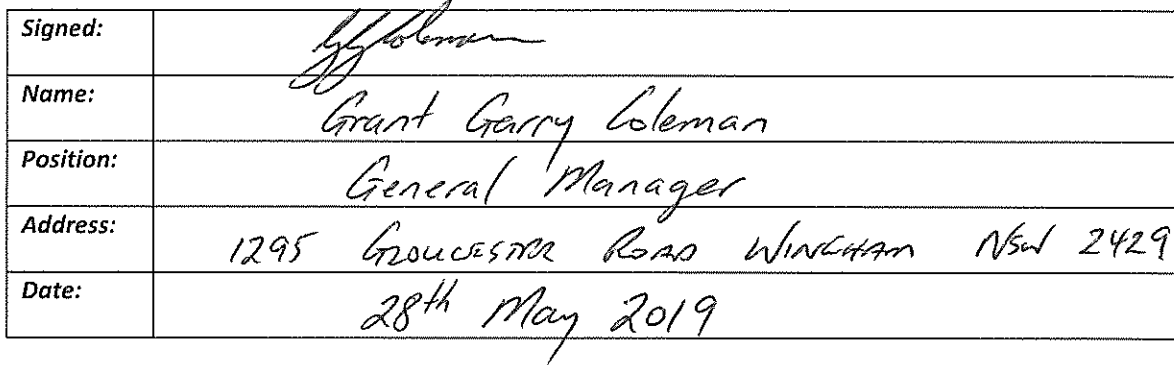 Signed: GGColeman
Name: Grant Garry Coleman
Position: General Manager
Address: 1295 GLOUCESTER ROAD WINGHAM NSW 2429
Date: 28th May 2019